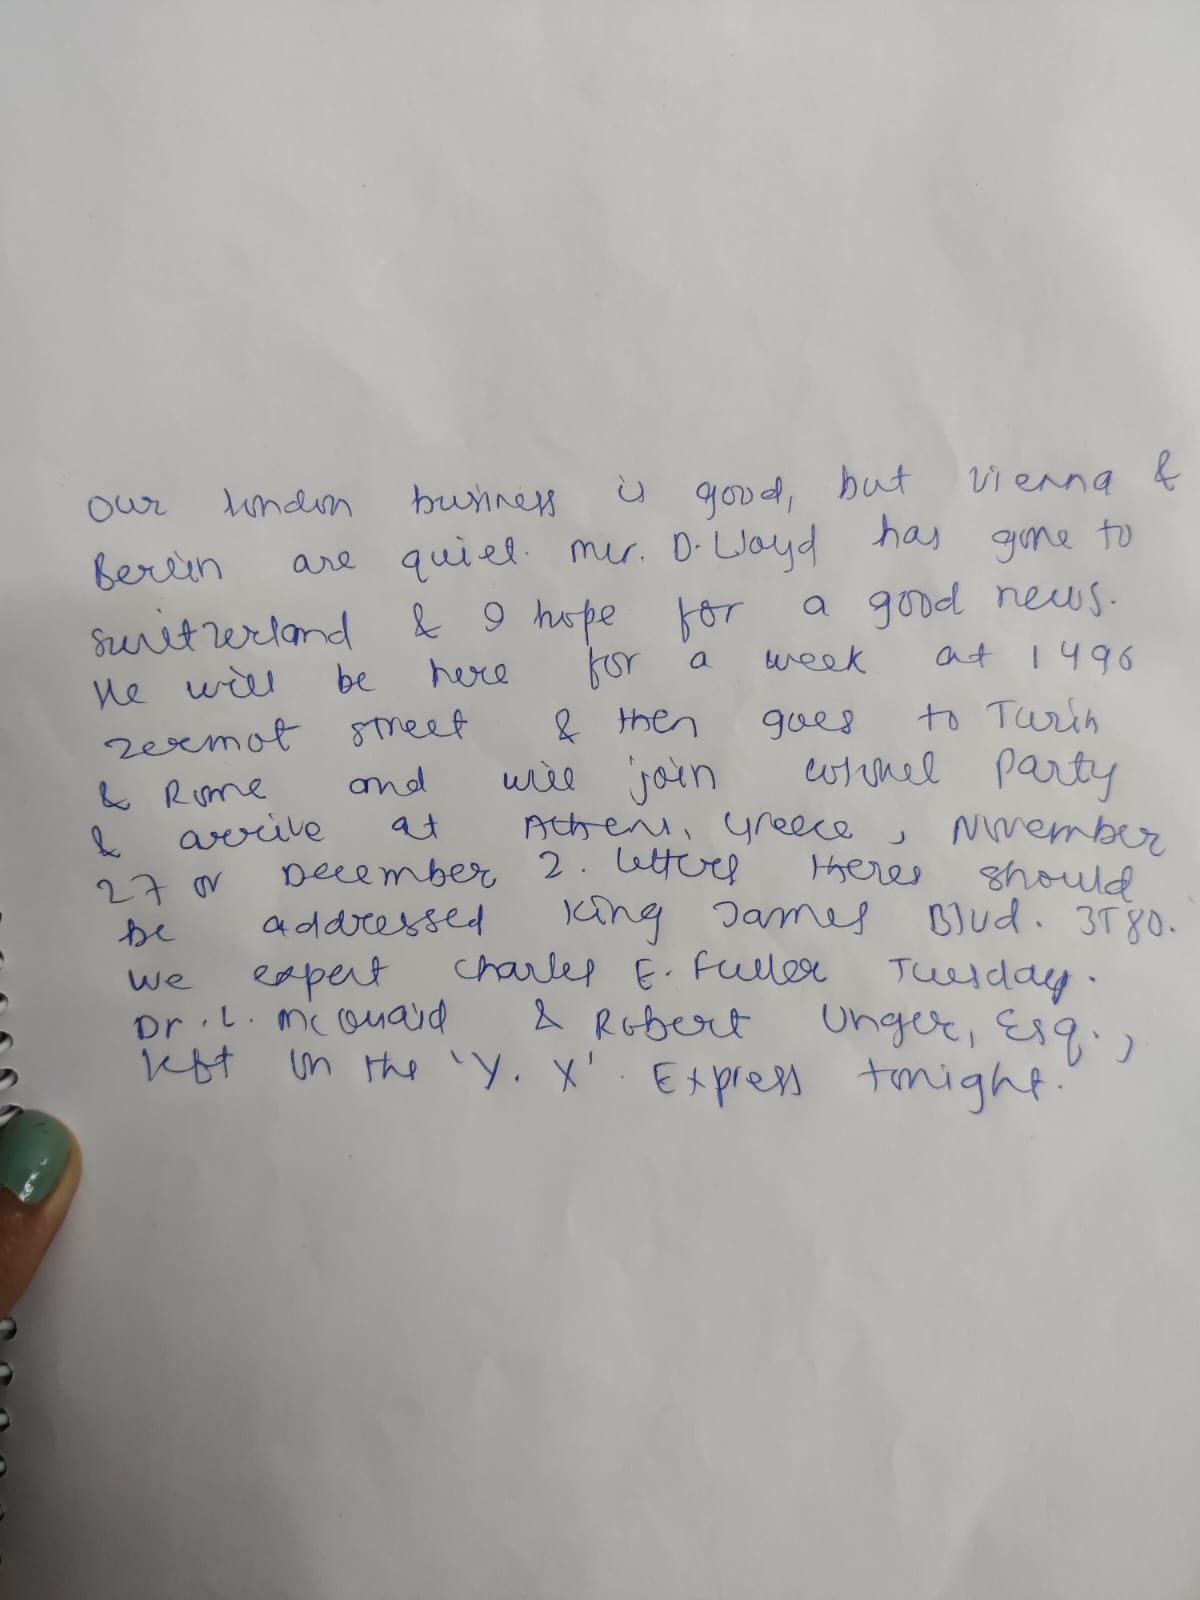 our london business is good, but Vienna &
Berlin are quiet. mr. D. Lloyd has gone to
switzerland & I hope for a good news.
He will be here for a week at 1496
zermot street & then goes to Turin
& Rome and will join colonel Party
& arrive at Athens, Greece, November
27 or December 2. letters theres should
be addressed King James Blvd. 3T80.
We expert Charles E. Fuller Tuesday.
Dr. L. Mc Quaid & Robert Unger, Esq.,
left on the 'Y. X'. Express tonight.